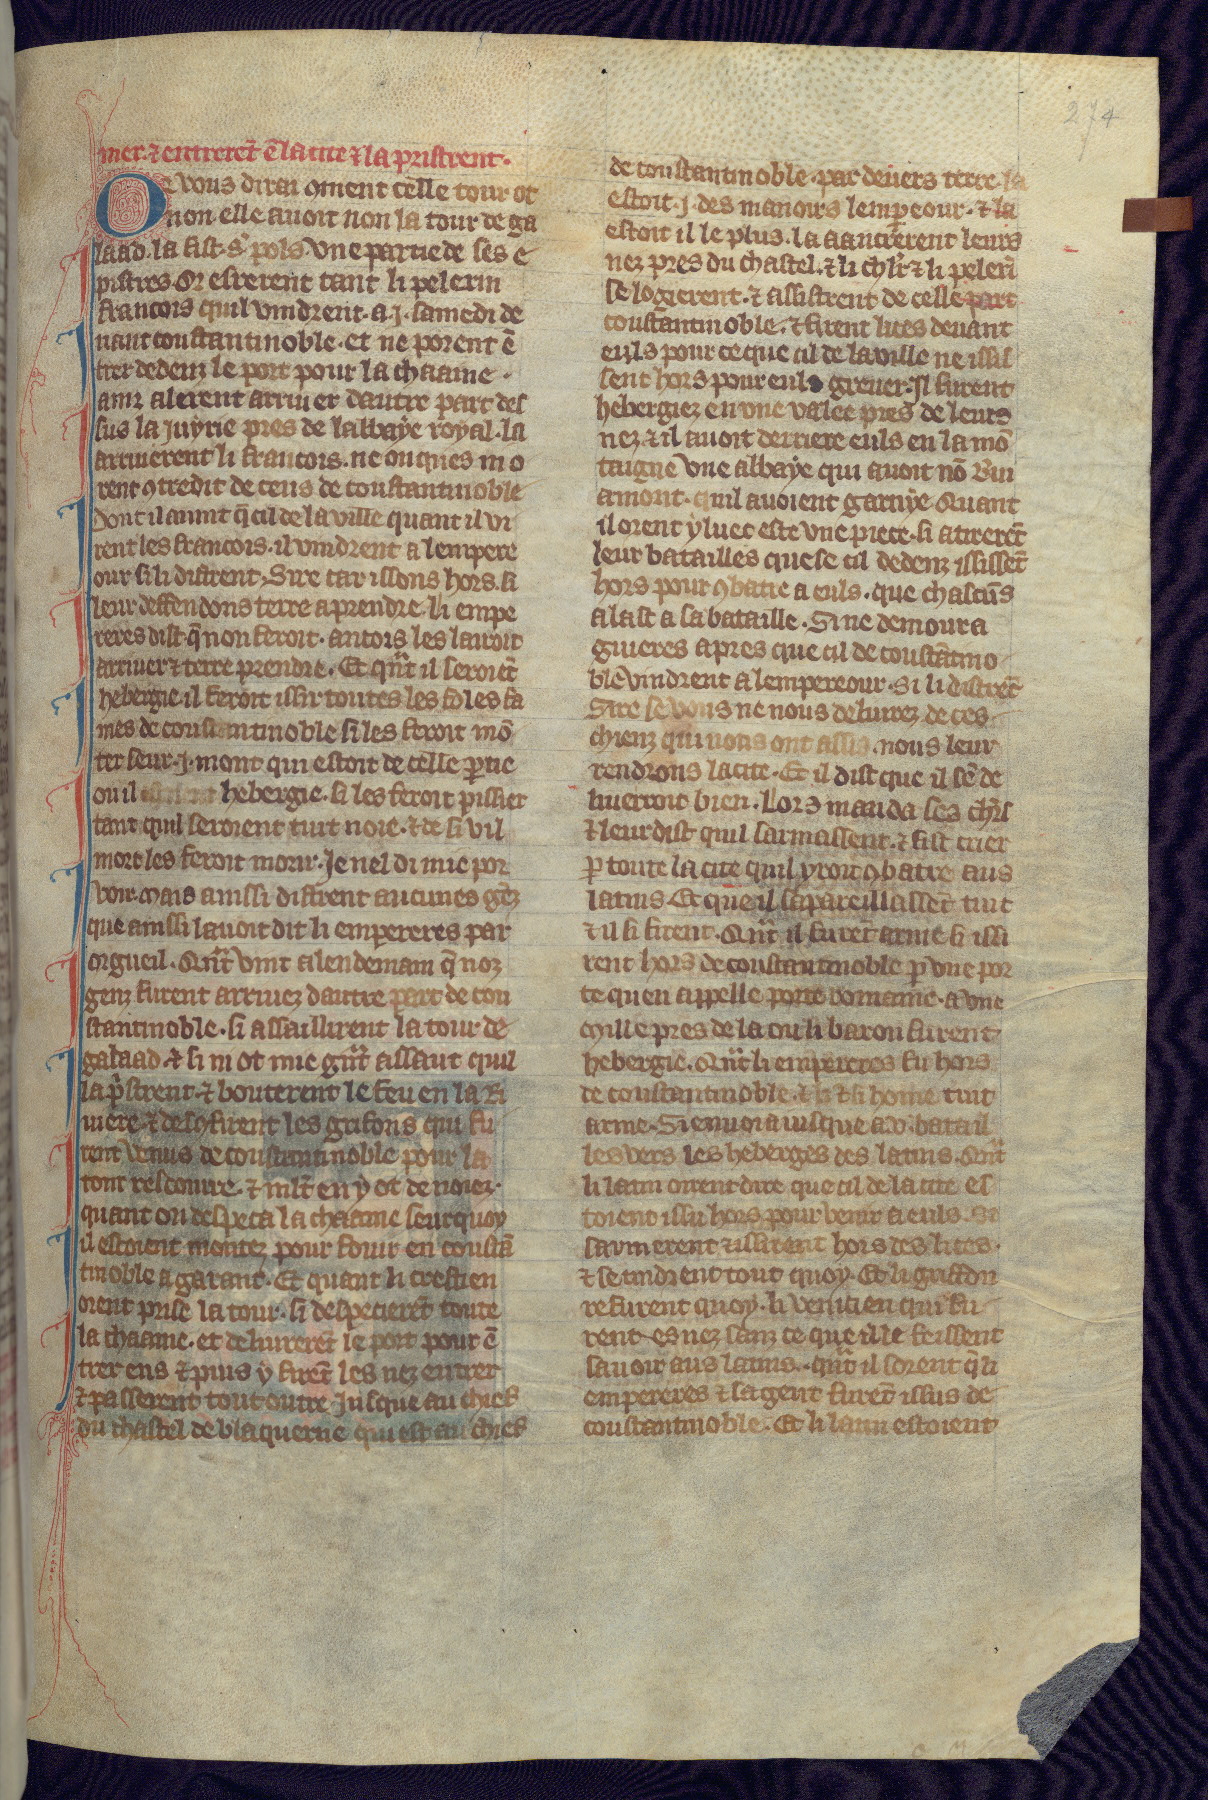 274
mer. ⁊ entreret̃ ẽ la cite ⁊ la pristrent.
Or vous dirai ꝯment celle tour ot
non elle auoit non la tour de ga
laad. la fist. s̾ pols vne partie de ses e
pistres. Or esrerent tant li pelerin
francois quil vindrent. a .j. samedi de
uant constantinoble. et ne porent ẽ
trer dedenz le port pour la chaaine.
ainz alerent arriuer dautre part des
sus la juyrie pres de labbaye royal. la
arriuerent li francois. ne onques ni o
rent ꝯtredit de ceus de constantinoble
Dont il auint q̃ cil de la ville quant il vi
rent les francois. il vindrent a lempere
our si li distrent. Sire car issons hors. si
leur deffendons terre a prendre. li empe
reres dist q̃ non feroit. ancois les lairoit
arriuer ⁊ terre prendre. Et qñt il seroiẽt
hebergie. il feroit issir toutes les foles fa
mes de constantinoble si les feroit mõ
ter seur .j. mont qui estoit de celle ꝑtie
ou il hebergie. si les feroit pissier
tant quil seroient tuit noie. ⁊ de si vil
mort les feroit morir. Je nel di mie por
voir. mais ainssi distrent aucunes gẽz
que ainssi lauoit dit li empereres par
orgueil. Qñt vint a lendemain q̃ noz
genz furent arriuez dautre part de con
stantinoble. si assaillirent la tour de
galaad. ⁊ si ni ot mie gñt assaut quil
la p̃strent. ⁊ bouterent le feu en la ri
uiere. ⁊ desꝯfirent les grifons qui fu
rent venus de constantinoble pour la
tour rescourre. ⁊ mlt̃ en y ot de noiez.
quant on despeca la chaaine seur quoy
il estoient montez pour fouir en constã
tinoble a garant. Et quant li crestien
orent prise la tour. si despecieret̃ toute
la chaaine. et deliureret̃ le port pour ẽ
trer ens ⁊ puis y firet̃ les nez entrer
⁊ passerent tout outre. Jusque au chief
du chastel de blaquerne qui est au chief
de constantinoble. par deuers terre. la
estoit .j. des manoirs lempeour. ⁊ la
estoit il le plus. la aancrerent leurs
nez pres du chastel. ⁊ li chl̃r ⁊ li pelerĩ
se logierent. ⁊ assistrent de celle part
constantinoble. ⁊ firent lices deuant
euls pour ce que cil de la ville ne issis
sent hors pour euls greuer. Il furent
hebergiez en vne valee pres de leurs
nez ⁊ il auoit derriere euls en la mõ
taigne vne abbaye qui auoit nõ Bui
amont. quil auoient garnye. Quant
il orent yluec este vne piece. si atireret̃
leur batailles que se cil dedenz ississet̃
hors pour ꝯbatre a euls. que chascũs
alast a sa bataille. Si ne demoura
guieres apres que cil de constãtino
ble vindrent a lempereour. Si li distret̃
Sire se vous ne nous deliurez de ces
chienz qui nous ont assis. nous leur
rendrons la cite. Et il dist que il sẽ de
liuerroit bien. Lors manda ses chl̃rs
⁊ leur dist quil sarmaissent. ⁊ fist crier
ꝑ toute la cite quil yroit ꝯbatre aus
latins. Et que il sapareillasset̃ tuit
⁊ il si firent. Qñt il furet̃ arme si issi
rent hors de constantinoble ꝑ vne por
te quen appelle porte romaine. a vne
mille pres de la ou li baron furent
hebergie. Qñt li empereres fu hors
de constantinoble. ⁊ il ⁊ si home tuit
arme. Si enuoia iusque a .v. batail
les vers les heberges des latins. Qñt
li latin oirent dire que cil de la cite es
toient issu hors pour venir a euls. Si
sarmerent ⁊ issirent hors des lices.
⁊ se tindrent tout quoy. Et li griffon
re furent quoy. li venicien qui fu
rent es nez sanz ce que il le feissent
sauoir aus latins. qñt il sorent q̃ li
empereres ⁊ sa gent furet̃ issus de
constantinoble. Et li latin estoient